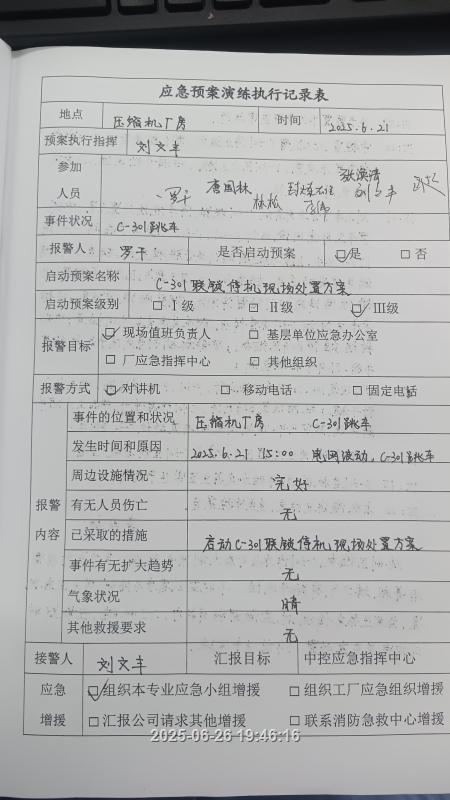 应急预案演练执行记录表
地点 压缩机厂房 时间 2025.6.21
预案执行指挥 刘文丰
参加
人员 罗干 唐国林 林松
事件状况 C-301跳车
报警人 罗干 是否启动预案 ☑是 □否
启动预案名称 C-301联锁停机现场处置方案
启动预案级别 □Ⅰ级 □Ⅱ级 ☑Ⅲ级
报警目标 ☑现场值班负责人 □基层单位应急办公室
□厂应急指挥中心 □其他组织
报警方式 ☑对讲机 □移动电话 □固定电话
报警
内容
事件的位置和状况 压缩机厂房 C-301跳车
发生时间和原因 2025.6.21 15:00 电网波动,C-301跳车
周边设施情况 完好
有无人员伤亡 无
已采取的措施 启动C-301联锁停机现场处置方案
事件有无扩大趋势 无
气象状况 晴
其他救援要求 无
接警人 刘文丰 汇报目标 中控应急指挥中心
应急
增援
☑组织本专业应急小组增援 □组织工厂应急组织增援
□汇报公司请求其他增援 □联系消防急救中心增援
2025-06-26 19:46:16